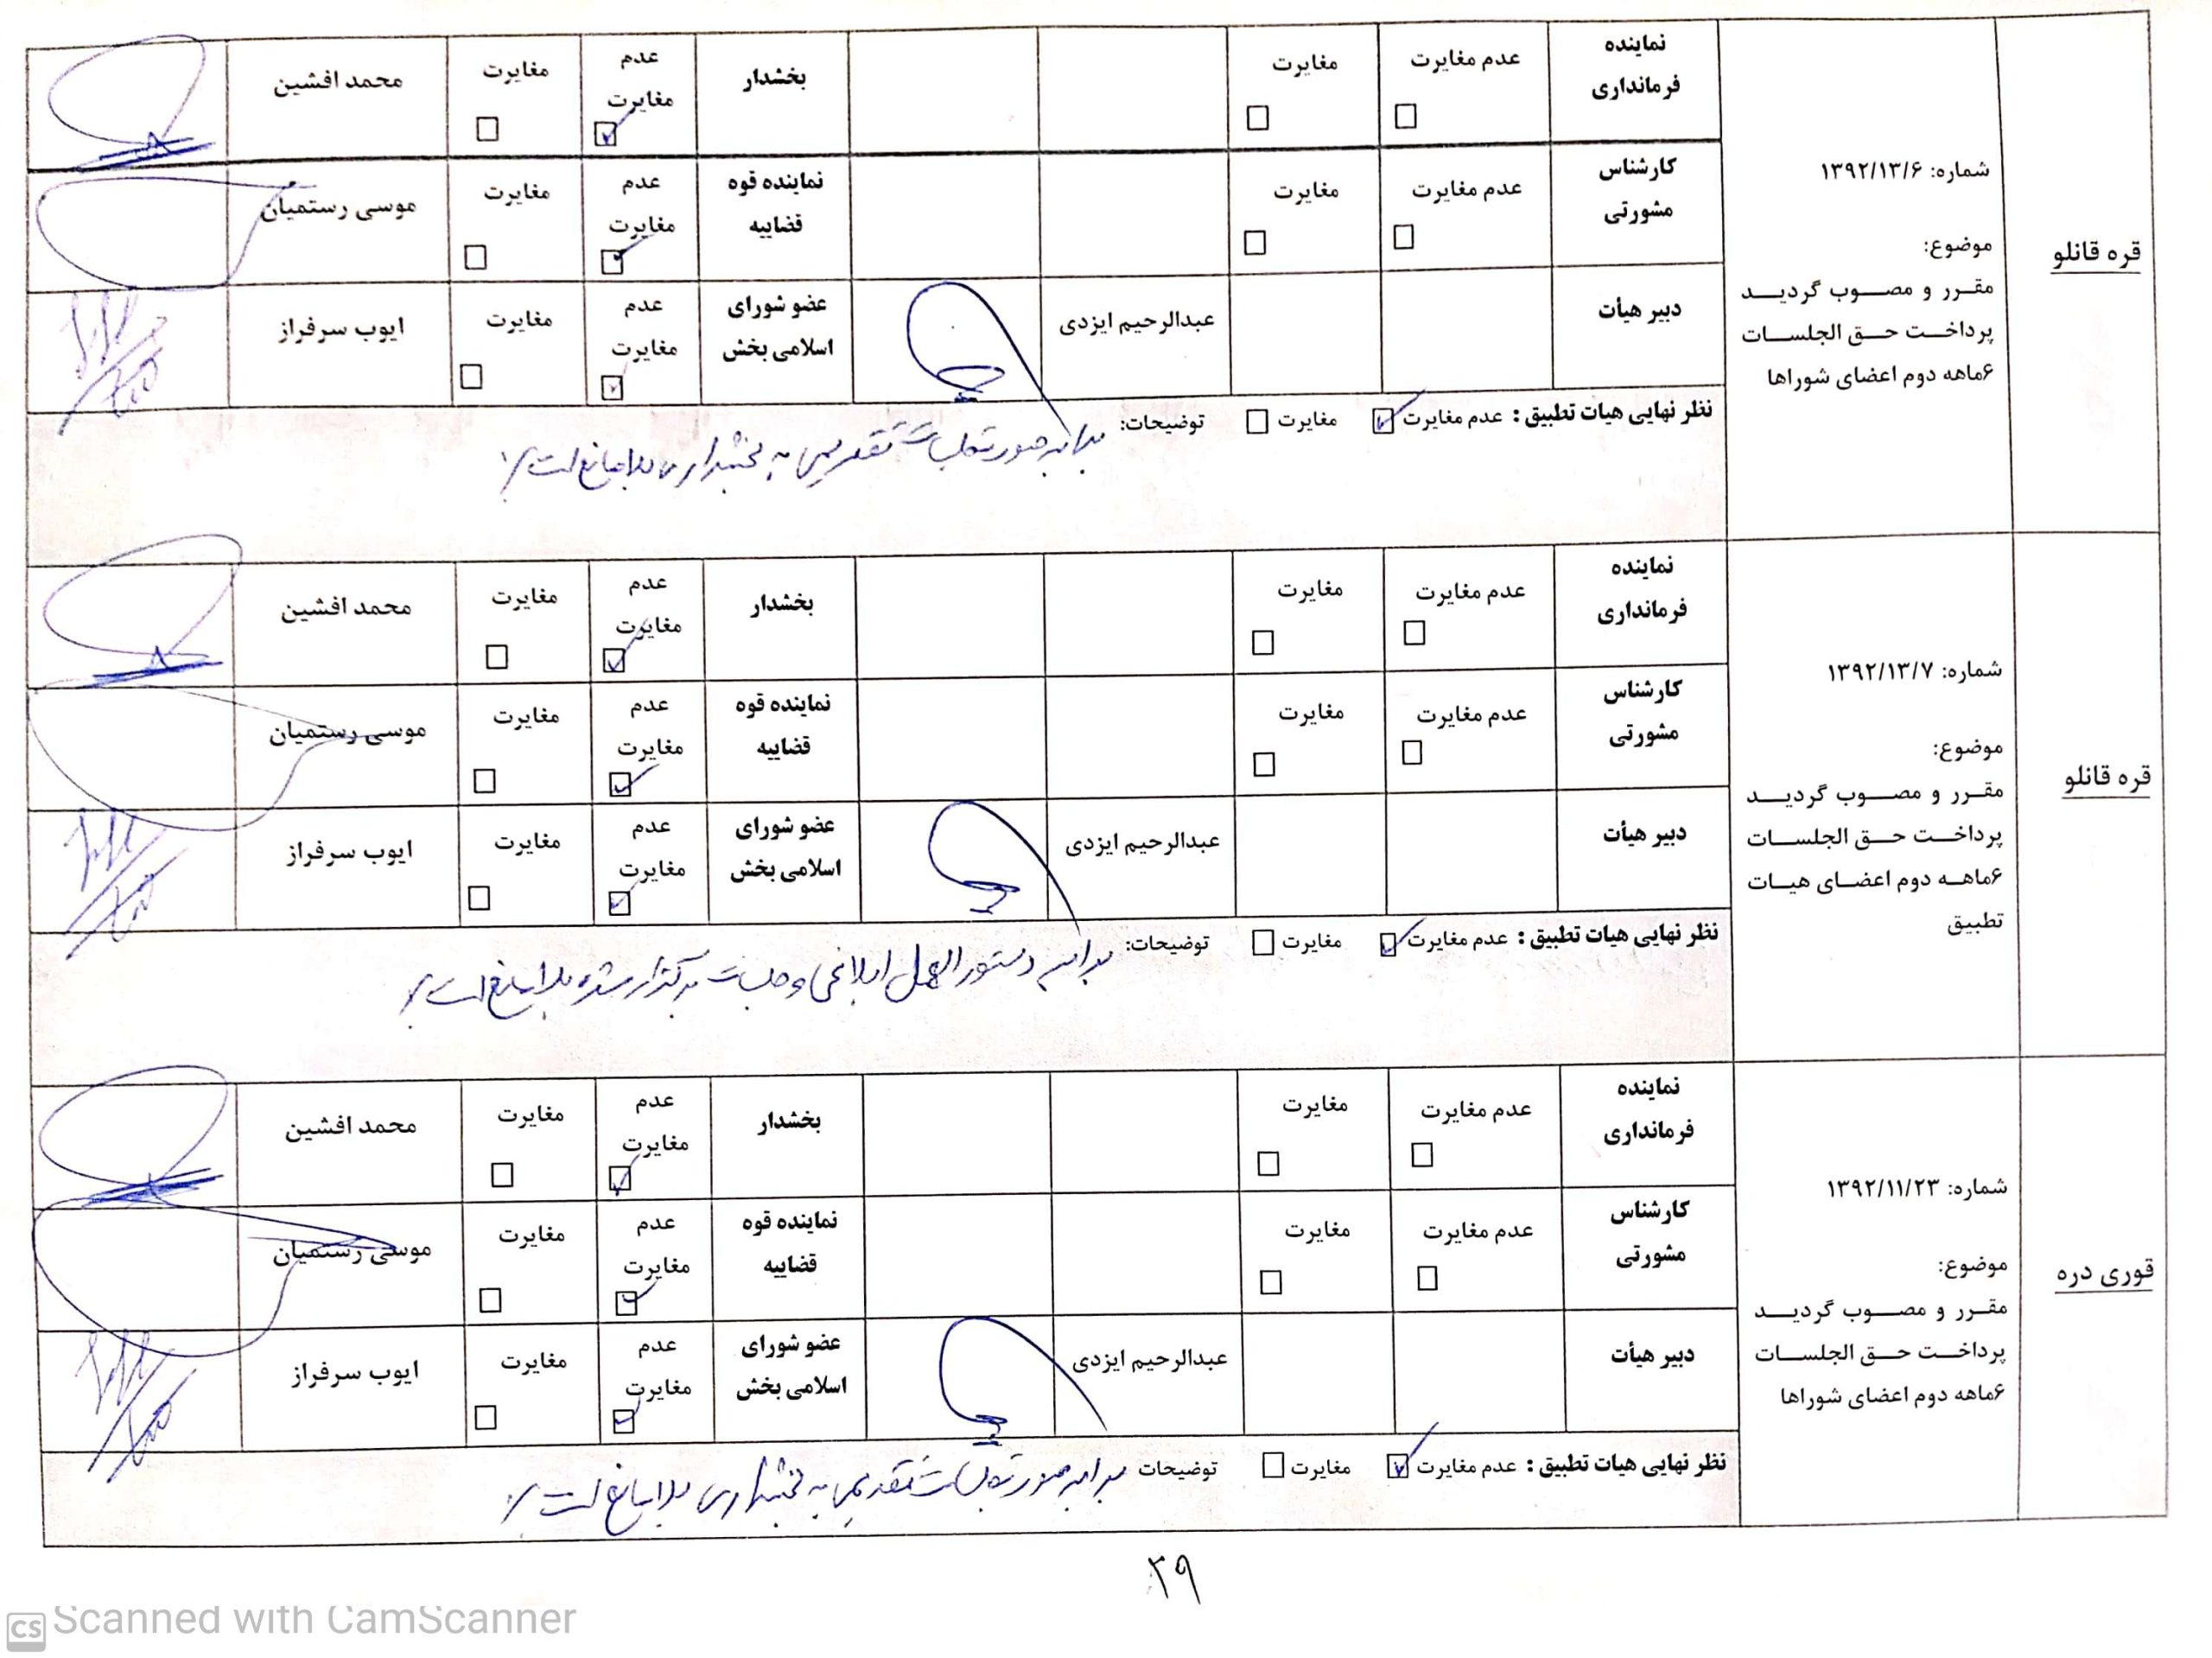 قره قانلو
شماره: ۱۳۹۲/۱۳/۶
موضوع:
مقرر و مصوب گردید
پرداخت حق الجلسات
۶ماهه دوم اعضای شوراها
نماینده
فرمانداری
عدم مغایرت
مغایرت
بخشدار
عدم
مغایرت
مغایرت
محمد افشین
کارشناس
مشورتی
عدم مغایرت
مغایرت
نماینده قوه
قضاییه
عدم
مغایرت
مغایرت
موسی رستمیان
دبیر هیأت
عبدالرحیم ایزدی
عضو شورای
اسلامی بخش
عدم
مغایرت
مغایرت
ایوب سرفراز
نظر نهایی هیات تطبیق : عدم مغایرت مغایرت توضیحات:
برابر صورتجلسات تقدیمی به بخشداری بلامانع است
قره قانلو
شماره: ۱۳۹۲/۱۳/۷
موضوع:
مقرر و مصوب گردید
پرداخت حق الجلسات
۶ماهه دوم اعضای هیات
تطبیق
نماینده
فرمانداری
عدم مغایرت
مغایرت
بخشدار
عدم
مغایرت
مغایرت
محمد افشین
کارشناس
مشورتی
عدم مغایرت
مغایرت
نماینده قوه
قضاییه
عدم
مغایرت
مغایرت
موسی رستمیان
دبیر هیأت
عبدالرحیم ایزدی
عضو شورای
اسلامی بخش
عدم
مغایرت
مغایرت
ایوب سرفراز
نظر نهایی هیات تطبیق : عدم مغایرت مغایرت توضیحات:
برابر دستورالعمل ابلاغی و جلسات برگزار شده بلامانع است
قوری دره
شماره: ۱۳۹۲/۱۱/۲۳
موضوع:
مقرر و مصوب گردید
پرداخت حق الجلسات
۶ماهه دوم اعضای شوراها
نماینده
فرمانداری
عدم مغایرت
مغایرت
بخشدار
عدم
مغایرت
مغایرت
محمد افشین
کارشناس
مشورتی
عدم مغایرت
مغایرت
نماینده قوه
قضاییه
عدم
مغایرت
مغایرت
موسی رستمیان
دبیر هیأت
عبدالرحیم ایزدی
عضو شورای
اسلامی بخش
عدم
مغایرت
مغایرت
ایوب سرفراز
نظر نهایی هیات تطبیق : عدم مغایرت مغایرت توضیحات
برابر صورتجلسات تقدیمی به بخشداری بلامانع است
۲۹
CS Scanned with CamScanner